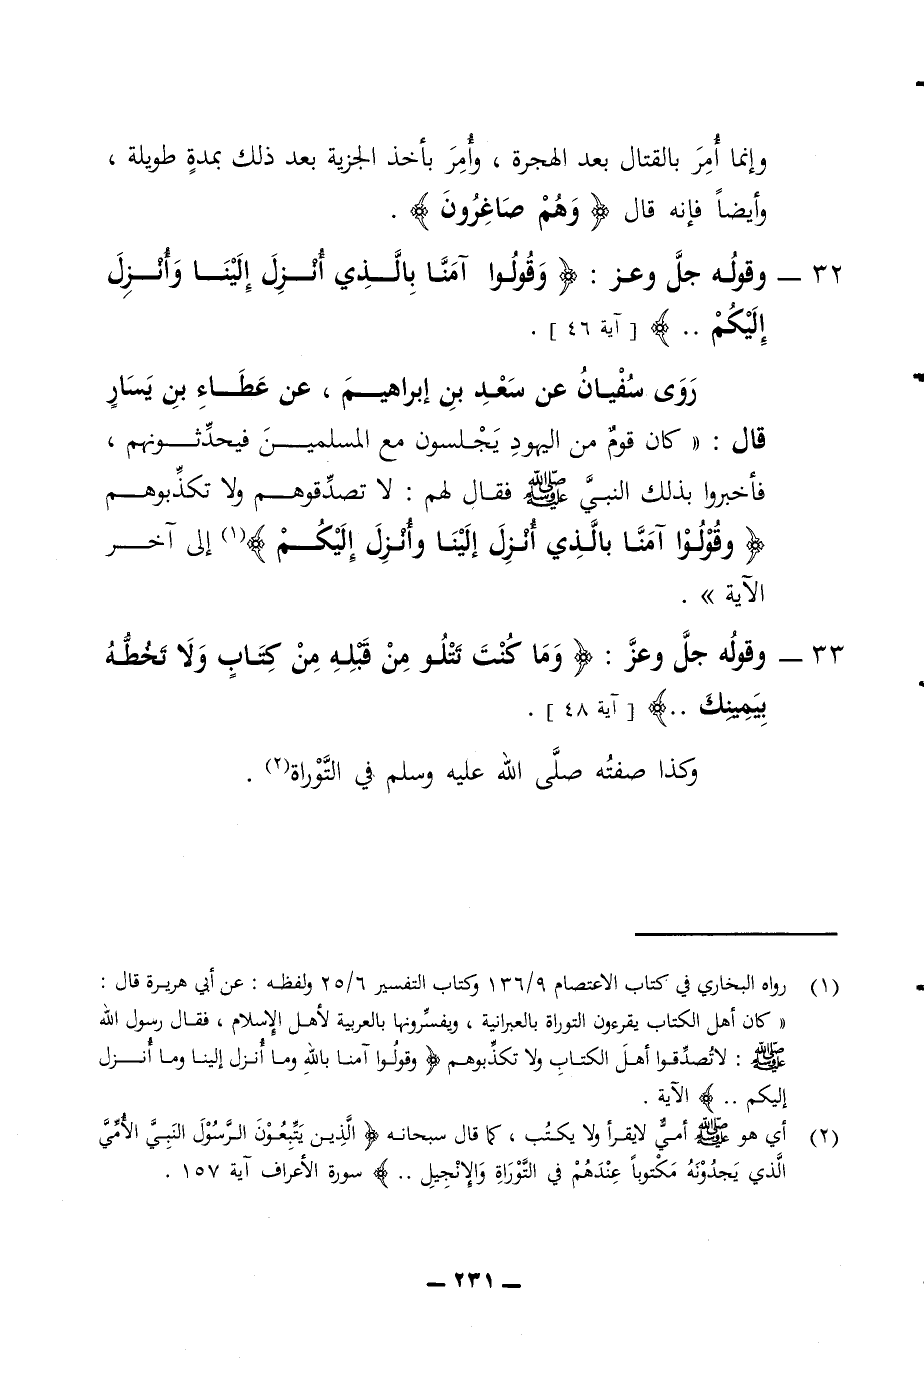 وإنما أُمِرَ بالقتال بعد الهجرة ، وأُمِرَ بأخذ الجزية بعد ذلك بمدةٍ طويلة ،
وأيضاً فإنه قال ﴿ وَهُمْ صَاغِرُونَ ﴾ .
٣٢ ـ وقولُه جلَّ وعز : ﴿ وَقُولُوا آمَنَّا بِالَّـذِي أُنْـزِلَ إِلَيْنَـا وَأُنْـزِلَ
إِلَيْكُمْ .. ﴾ [ آية ٤٦ ] .
رَوَى سُفْيانُ عن سَعْدِ بنِ إبراهيـمَ ، عن عَطَـاءِ بنِ يَسَارٍ
قال : « كان قومٌ من اليهودِ يَجْلسون مع المسلميـنَ فيحدِّثـونهم ،
فأخبروا بذلك النبيَّ ﷺ فقـال لهم : لا تصدِّقوهـم ولا تكذِّبوهـم
﴿ وقُوْلُوْا آمَنَّا بالَّذِي أُنْزِلَ إلَيْنَا وأُنْزِلَ إلَيْكُـمْ ﴾(١) إلى آخـر
الآية » .
٣٣ ـ وقولُه جلَّ وعزَّ : ﴿ وَمَا كُنْتَ تَتْلُو مِنْ قَبْلِهِ مِنْ كِتَابٍ وَلَا تَخُطُّهُ
بِيَمِينِكَ ..﴾ [ آية ٤٨ ] .
وكذا صفتُه صلَّى الله عليه وسلم في التَّوْراة(٢) .
(١) رواه البخاري في كتاب الاعتصام ١٣٦/٩ وكتاب التفسير ٢٥/٦ ولفظـه : عن أبي هريرة قال :
« كان أهل الكتاب يقرءون التوراة بالعبرانية ، ويفسِّرونها بالعربية لأهـل الإسلام ، فقـال رسول الله
ﷺ : لاتُصدِّقـوا أهـلَ الكتـاب ولا تكذِّبوهـم ﴿ وقولُـوا آمنـا باللهِ ومـا أُنـزل إلينا ومـا أُنـزل
إليكم .. ﴾ الآية .
(٢) أي هو ﷺ أميٌّ لايقـرأ ولا يكـتُب ، كا قال سبحانـه ﴿ الَّذِيـن يَتَّبِعُـوْنَ الـرَّسُوْلَ النَبِـيَّ الأُمِّـيَّ
الَّذي يَجدُوْنَهُ مَكْتوباً عِنْدَهُمْ في التَّوْرَاةِ وَالإنْجيلِ .. ﴾ سورة الأعراف آية ١٥٧ .
ـ ٢٣١ ـ